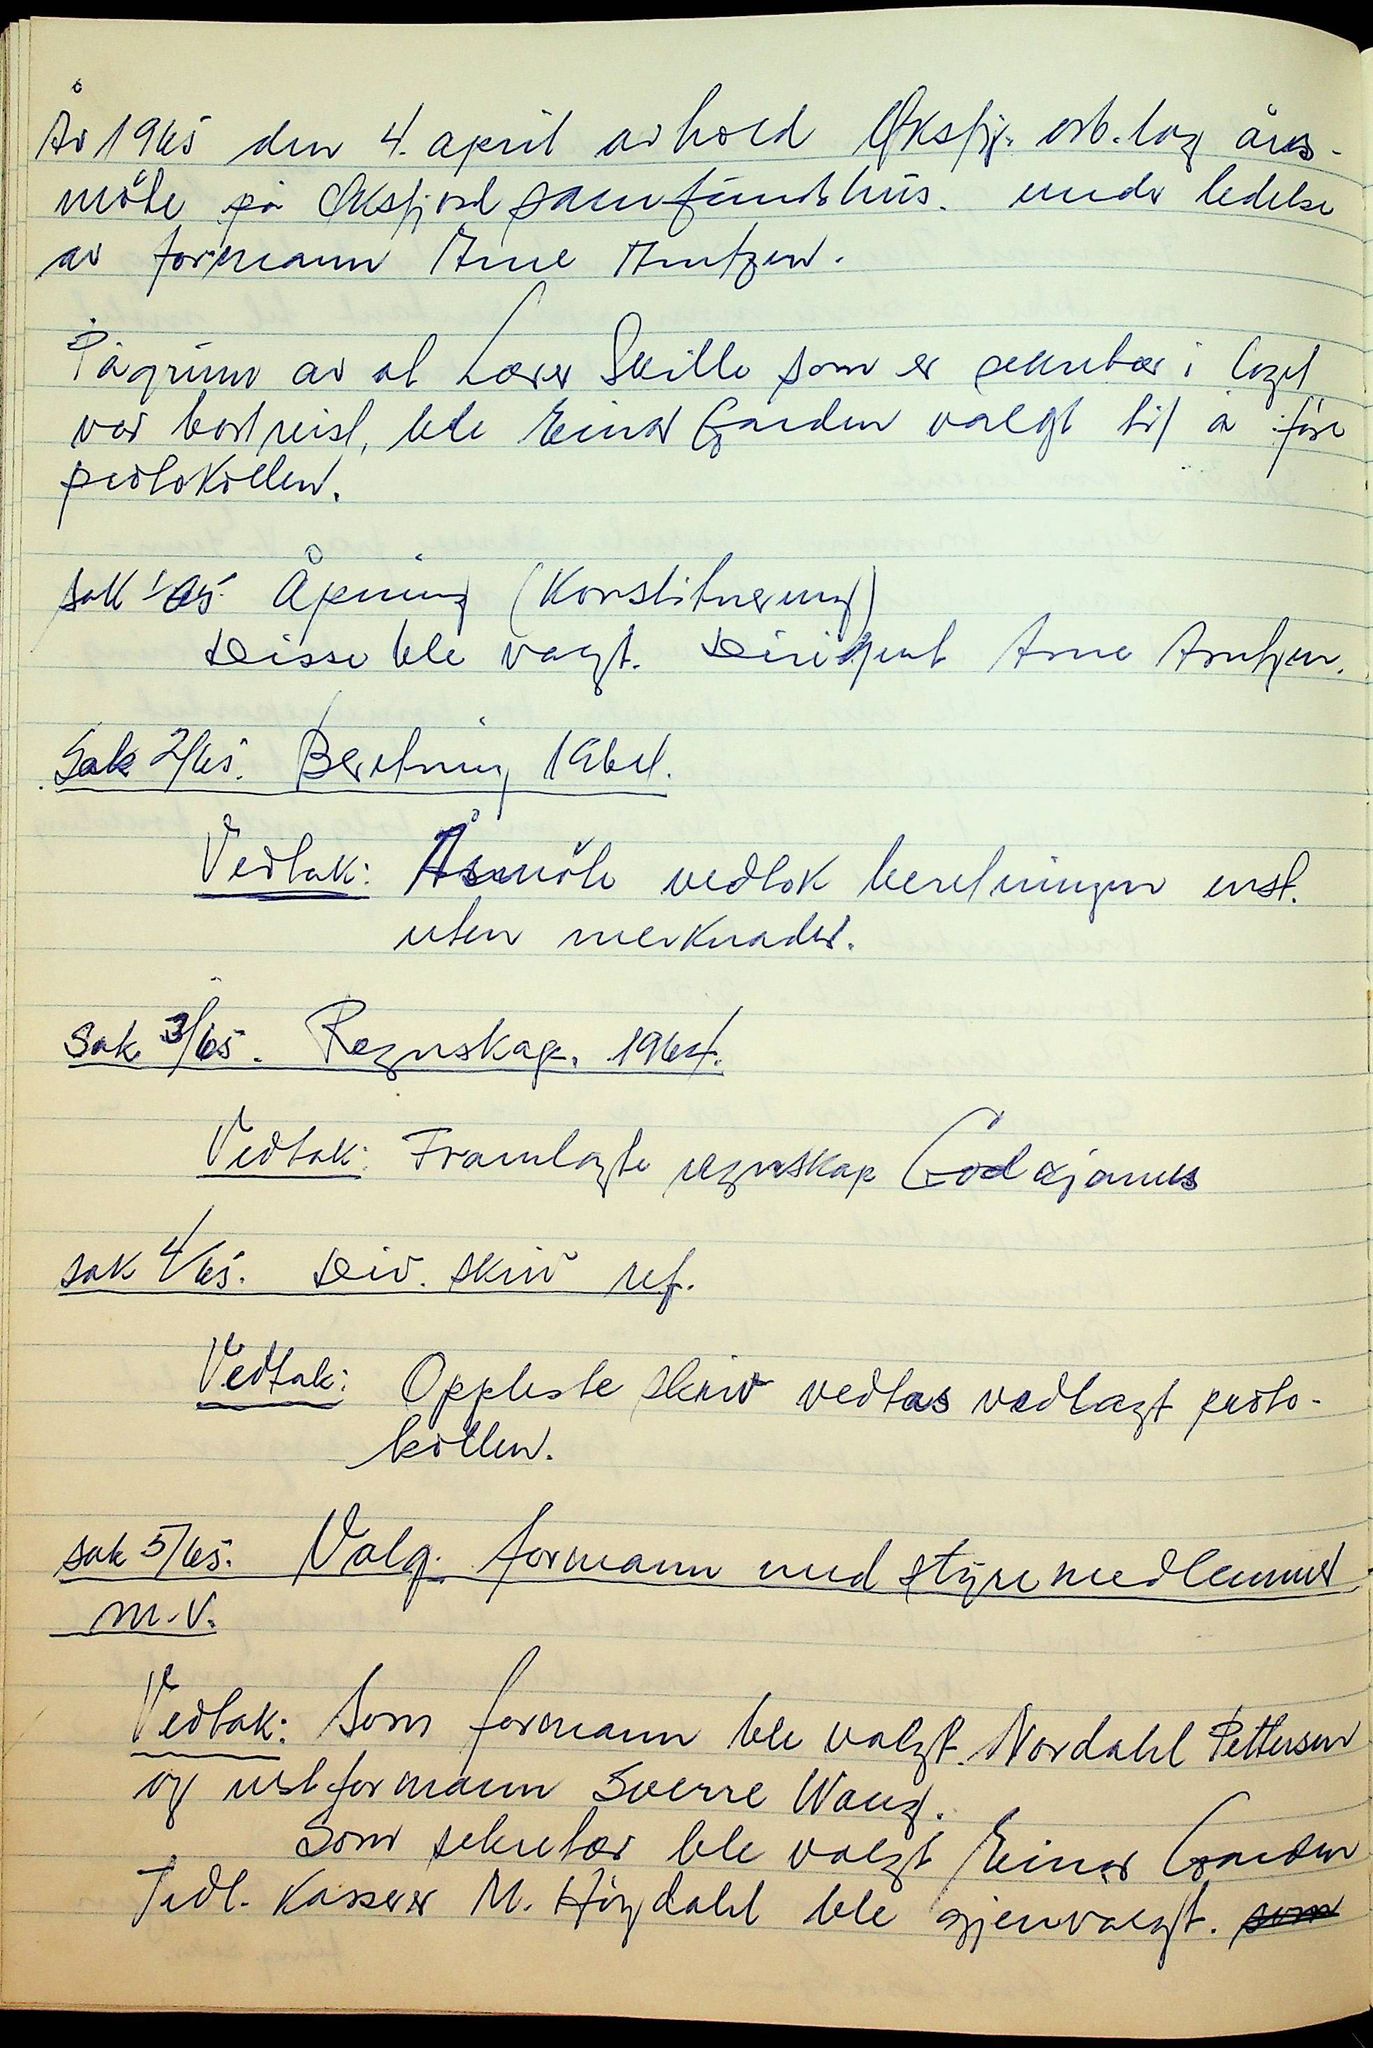 År 1965 den 4. april avhold Øksfj. arb. lag års-
möte på Øksfjord samfundshus. under ledelse
av formann Arne Arntzen.
Pågrunn av at Lærer Skille som er sekretær i laget
var bortreist, ble Einar Garden valgt til å före
protokollen.
sak 1/65 Åpning (Konstituering)
Disse ble valgt. Dirigent Arne Arntzen.
Sak 2/65. Beretning 1964.
Vedtak: Åsmöte vedtok beretningen enst.
uten merknader.
Sak 3/65. Regnskap. 1964.
Vedtak: Framlagte regnskap Godkjennes
sak 4/65. Div. skriv ref.
Vedtak: Oppleste skriv vedtas vedlagt proto-
kollen.
sak 5/65. Valg. formann med styremedlemmer
m.v.
Vedtak: Som formann ble valgt. Nordahl Pettersen
og nestformann Sverre Wang.
Som sekretær ble valgt Einar Garden
Tidl. Kasserer M. Höydahl ble gjenvalgt. som